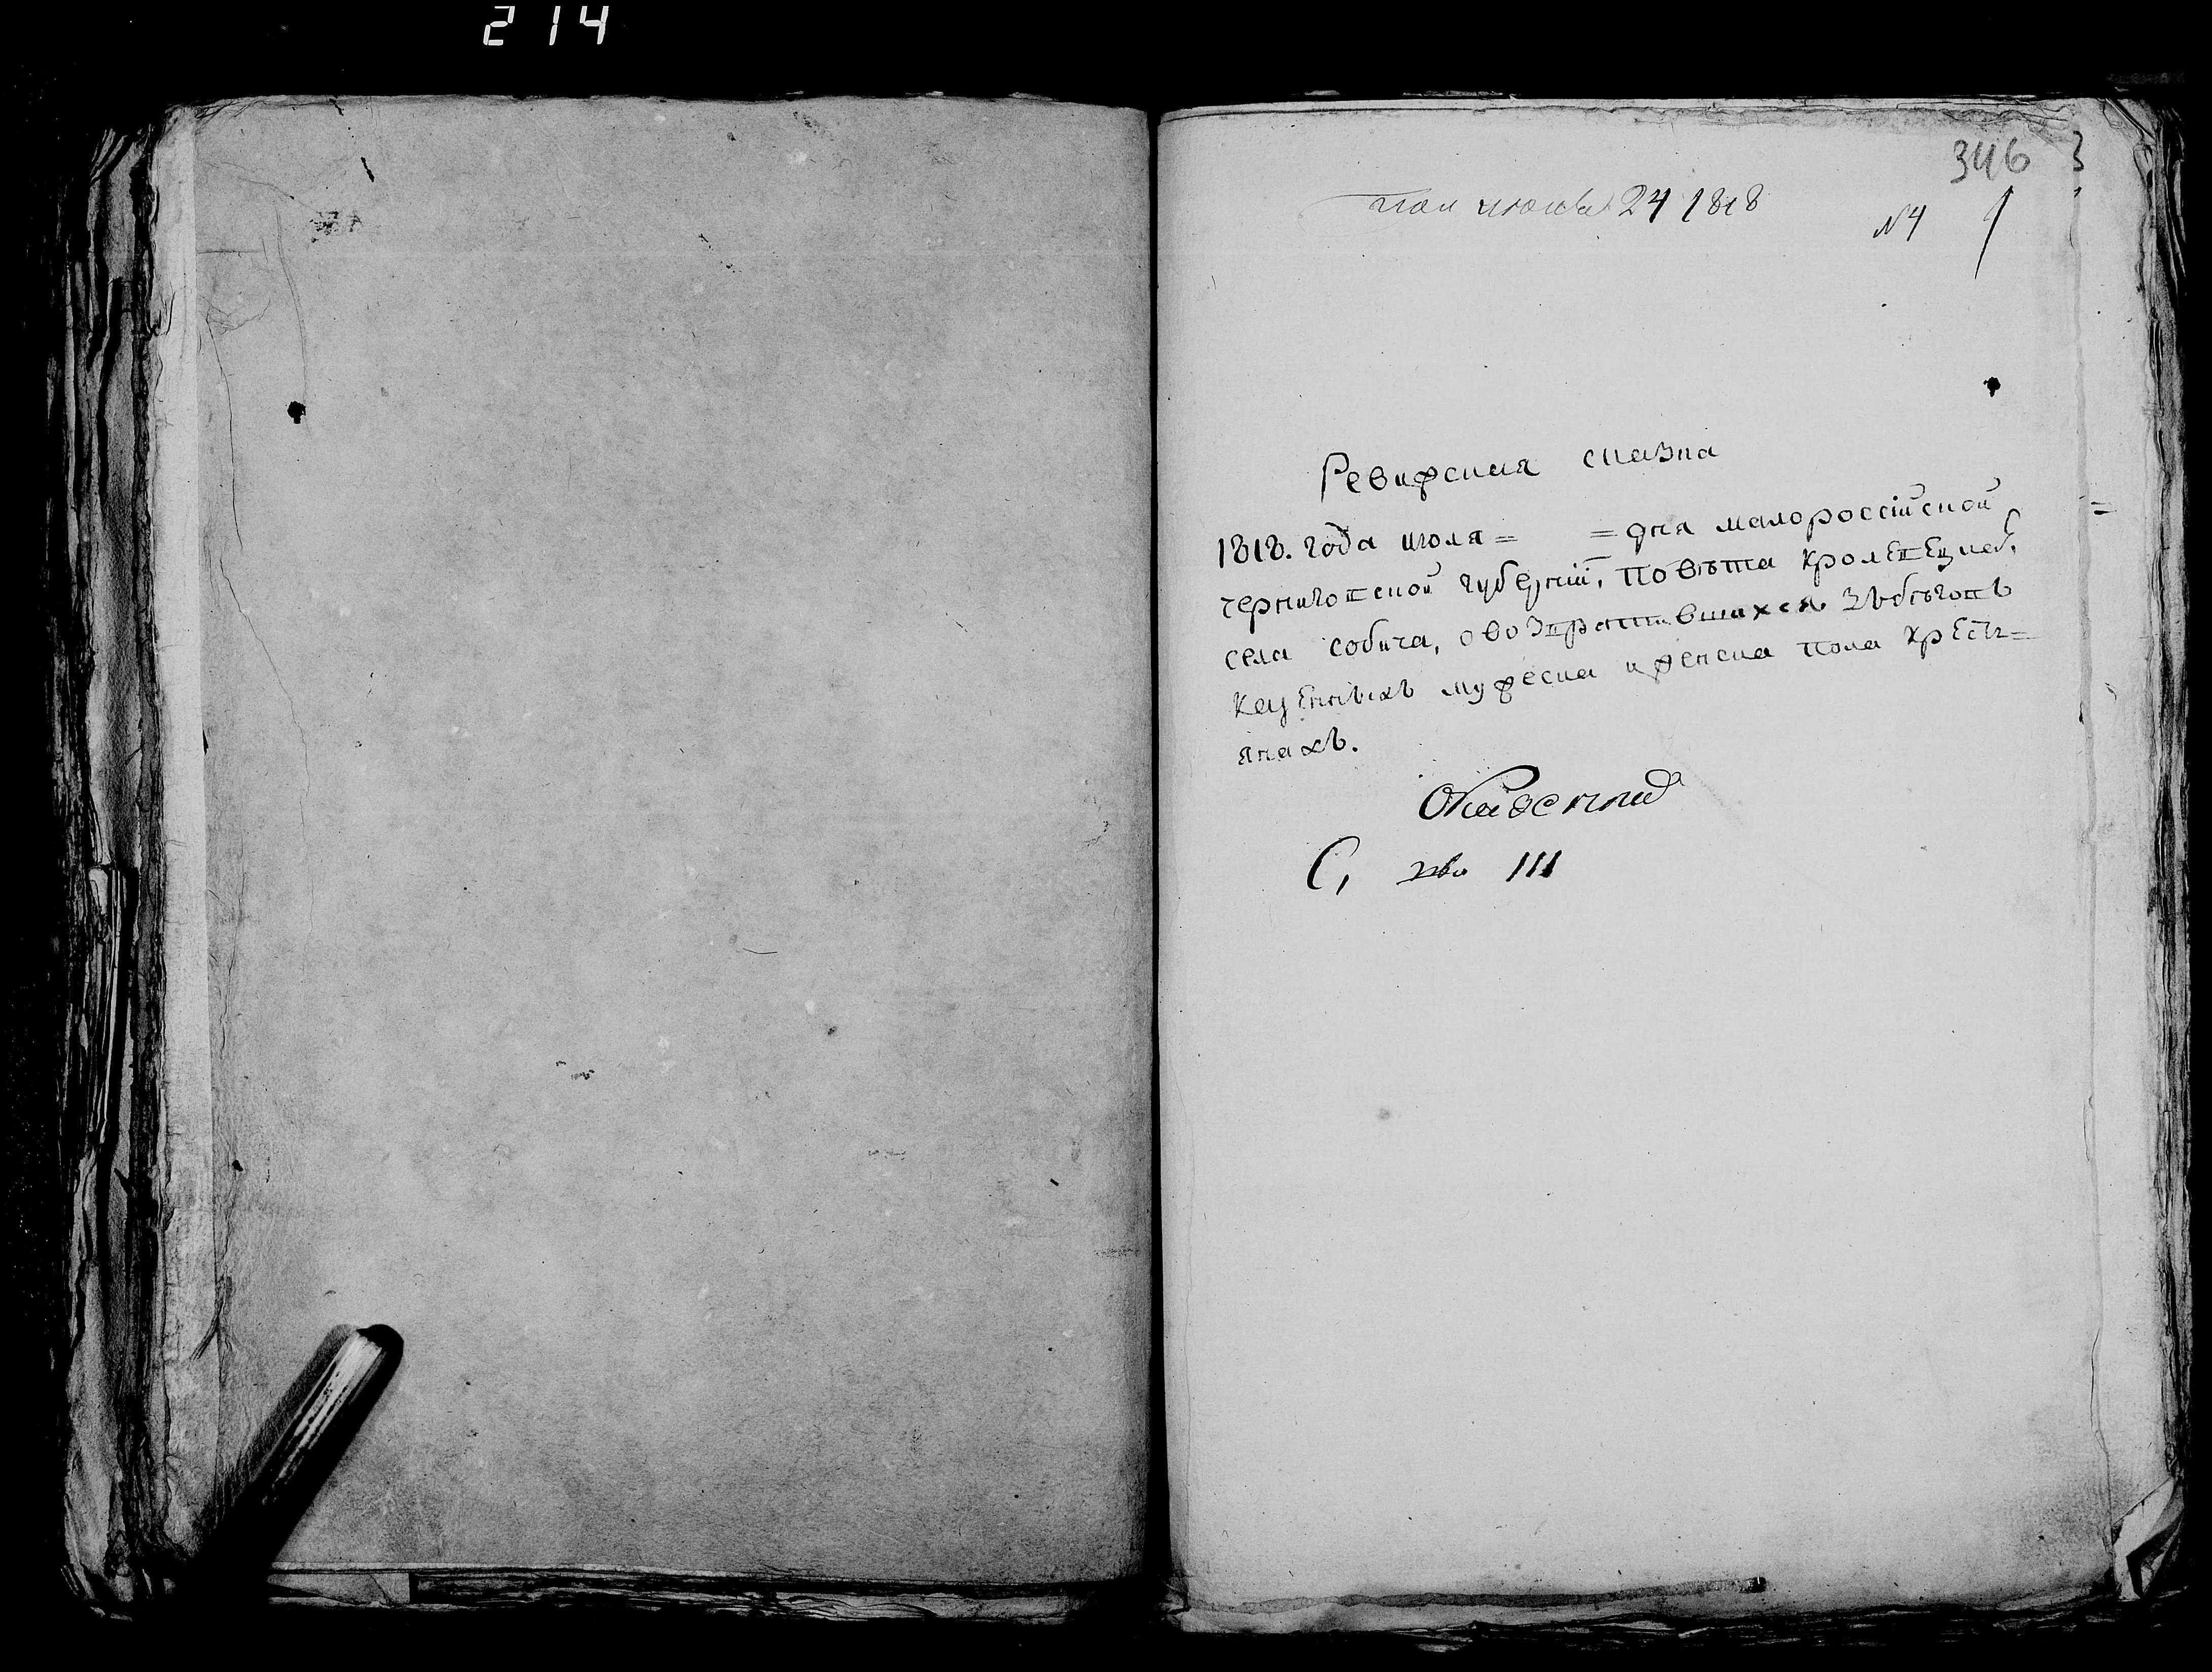 214
346
июля 24 1818
№4
Ревижская сказка
1818. года июля = = дня малороссійской
черниговской губерніи, повѣта кролевецкаг,
села собича, о возвратившихся зъ бѣговъ
казенныхъ мужеска и женска пола кресть=
янахъ.
С, 111